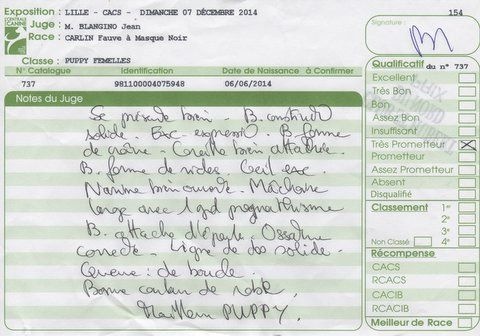 Exposition : LILLE - CACS - DIMANCHE 07 DÉCEMBRE 2014
154
CENTRALE CANINE
Juge : M. BLANGINO Jean
Race : CARLIN Fauve à Masque Noir
Signature :
Classe : PUPPY FEMELLES
N° Catalogue Identification Date de Naissance à Confirmer
737 981100004075948 06/06/2014
Notes du Juge
Se présente bien - B. construct
solide. Exc - expression. B. forme
de crâne - Oreille bien attachée.
B. forme de rides. Oeil exc.
Narine bien ouverte. Mâchoire
large avec 1 gd prognathisme
B. attache d'épaule. Ossature
correcte. Ligne de dos solide.
Queue : de boucle.
Bonne couleur de robe.
Meilleur PUPPY.
Qualificatif du n° 737
Excellent
Très Bon
Bon
Assez Bon
Insuffisant
Très Prometteur X
Prometteur
Assez Prometteur
Absent
Disqualifié
Classement 1er
2e
3e
Non Classé 4e
Récompense
CACS
RCACS
CACIB
RCACIB
Meilleur de Race